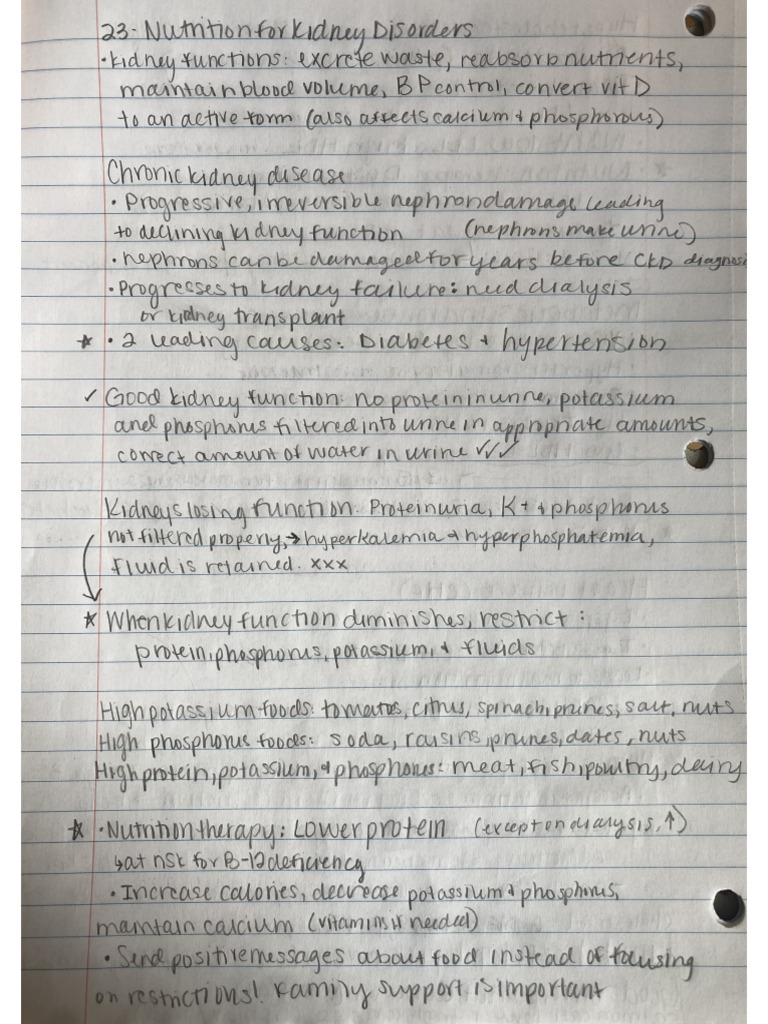 23- Nutrition for Kidney Disorders
• Kidney functions: excrete waste, reabsorb nutrients,
maintain blood volume, BP control, convert vit D
to an active form (also affects calcium + phosphorous)
Chronic kidney disease
• Progressive, irreversible nephron damage leading
to declining kidney function (nephrons make urine)
• nephrons can be damaged for years before CKD diagnosi
• Progresses to kidney failure: need dialysis
or kidney transplant
* • 2 leading causes: Diabetes + hypertension
✓ Good kidney function: no protein in urine, potassium
and phosphorus filtered into urine in appropriate amounts,
correct amount of water in urine ✓✓✓
Kidneys losing function: Proteinuria, K+ + phosphorus
not filtered properly, → hyperkalemia + hyperphosphatemia,
fluid is retained. xxx
* When kidney function diminishes, restrict:
protein, phosphorus, potassium, + fluids
High potassium foods: tomatos, citrus, spinach, prunes, salt, nuts
High phosphorus foods: soda, raisins, prunes, dates, nuts
High protein, potassium, + phosphorus: meat, fish, poultry, dairy
* • Nutrition therapy: Lower protein (except on dialysis, ↑)
↳ at risk for B-12 deficiency
• Increase calories, decrease potassium + phosphorus,
maintain calcium (vitamins if needed)
• Send positive messages about food instead of focusing
on restrictions! Family support is important